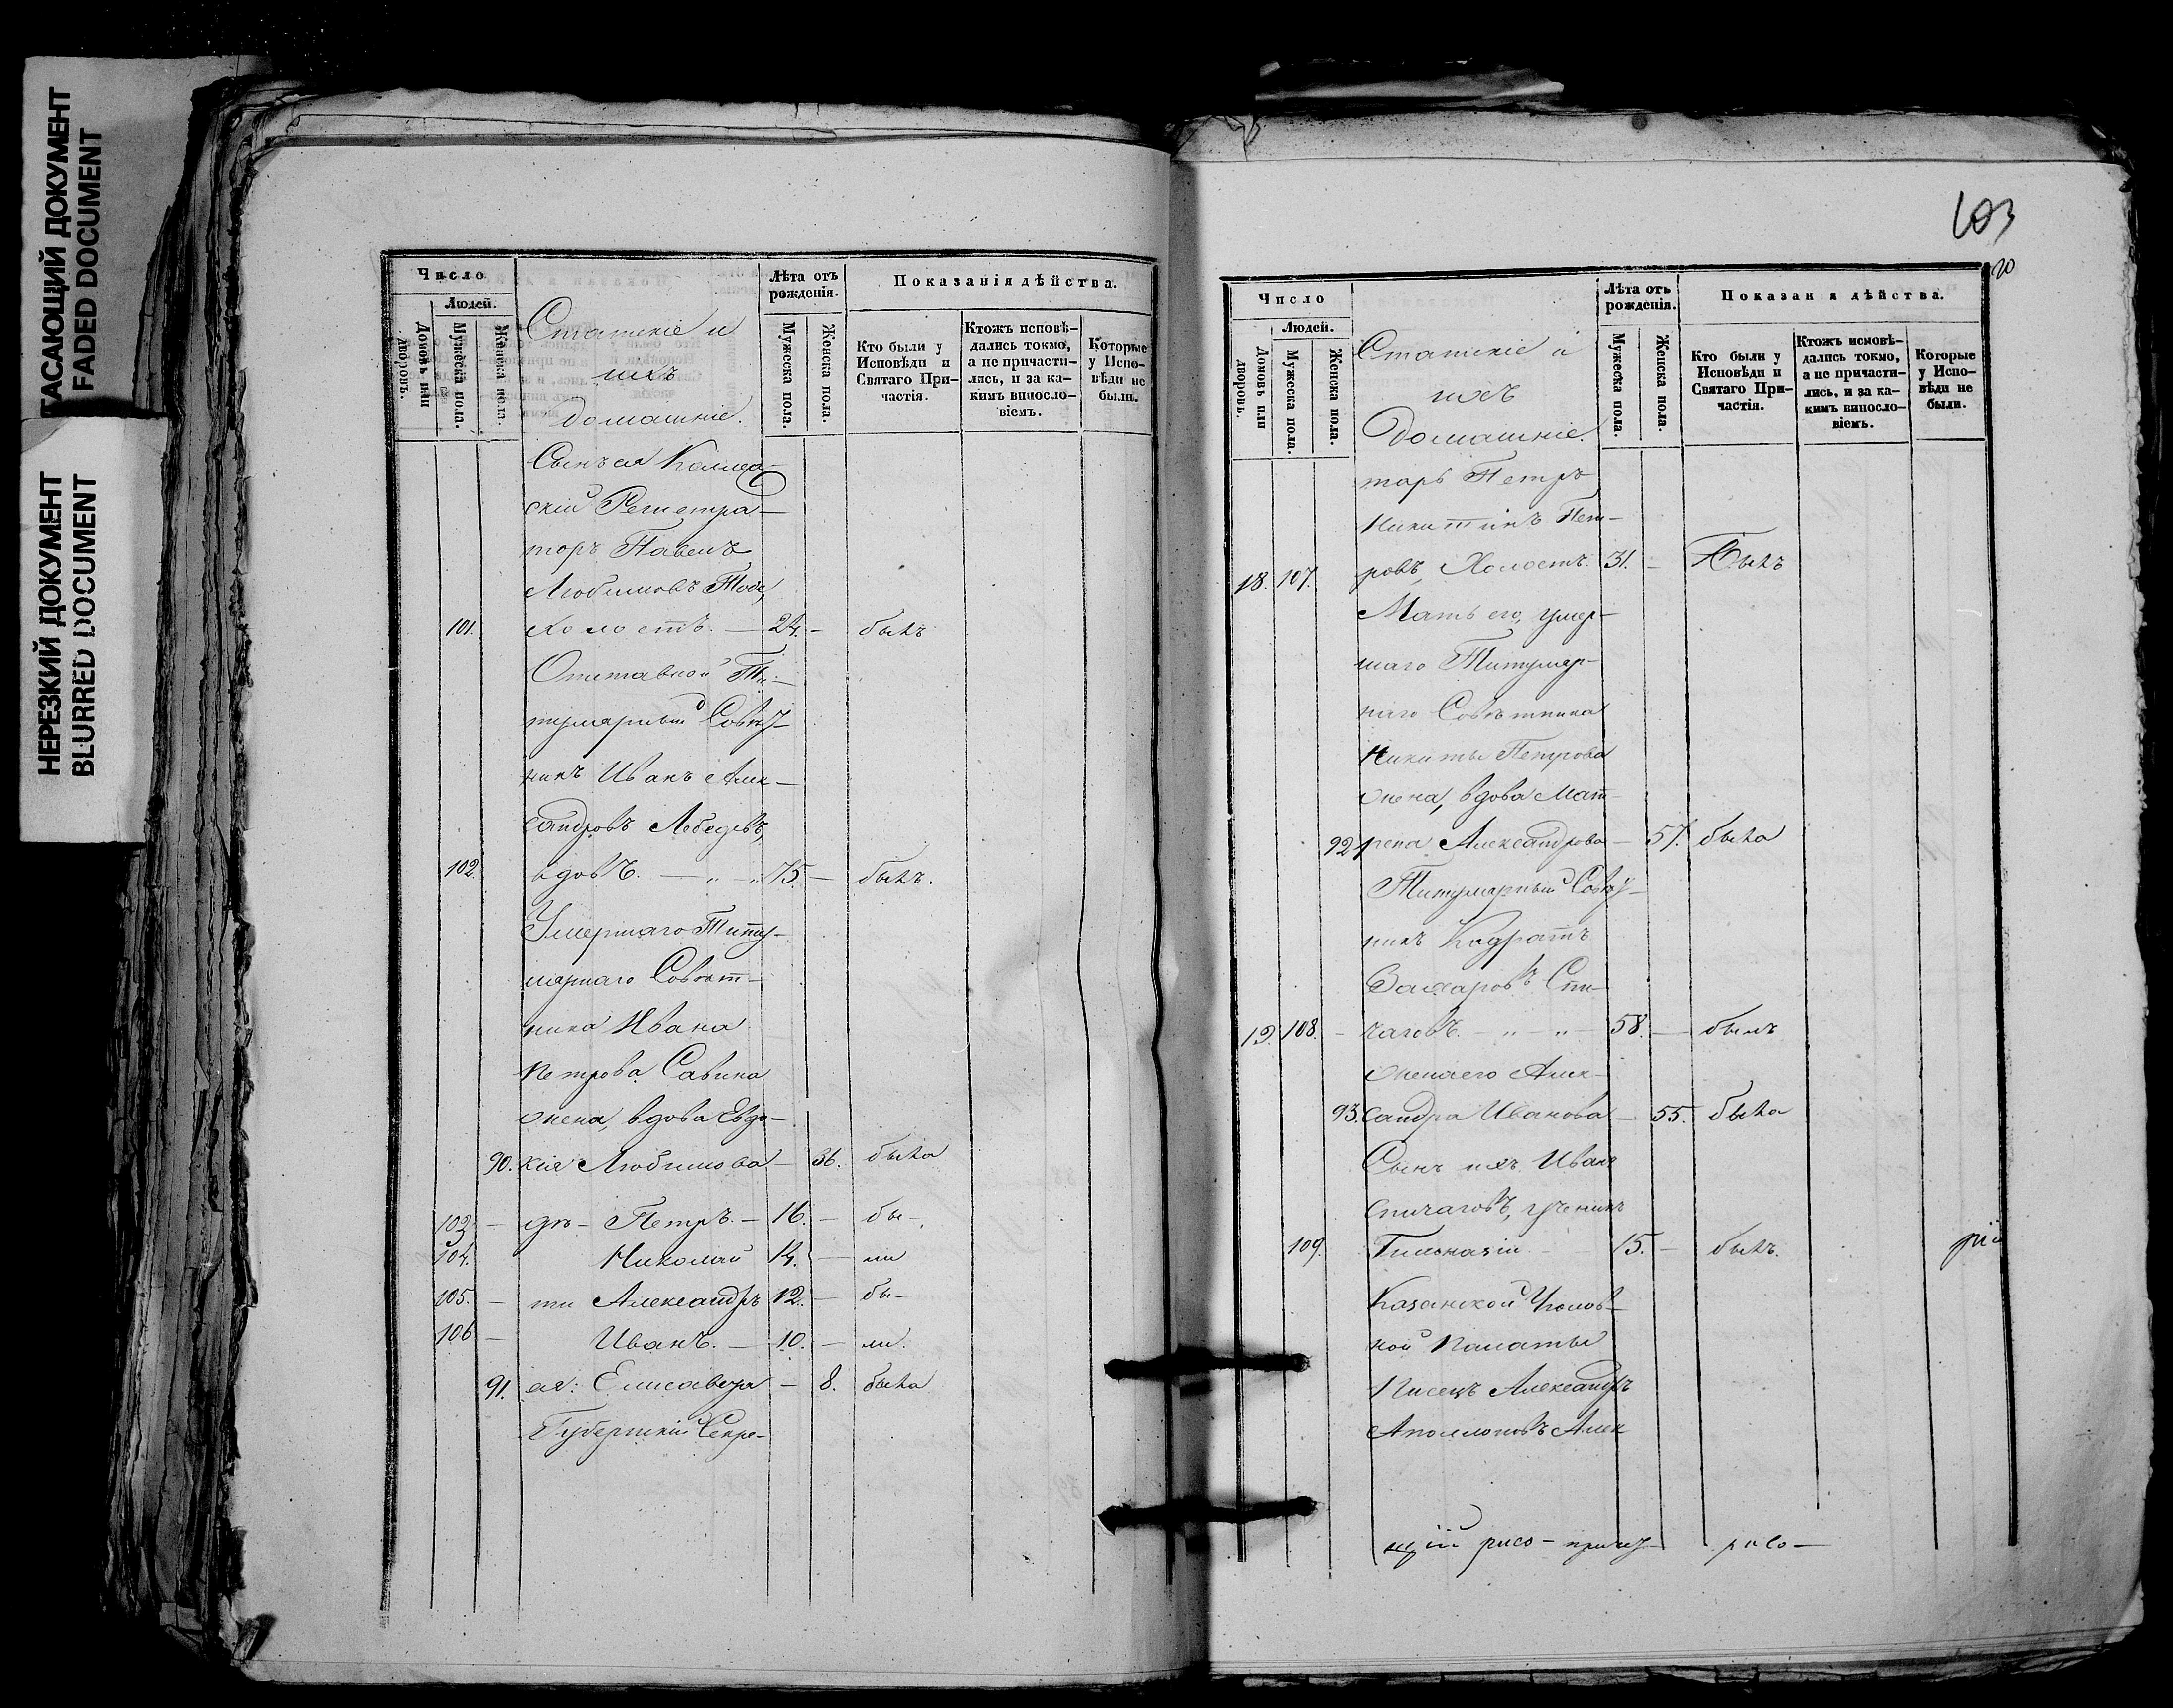 ТАСАЮЩИЙ ДОКУМЕНТ
FADED DOCUMENT
НЕРЕЗКИЙ ДОКУМЕНТ
BLURRED DOCUMENT
Число
Людей.
Домовъ или дворовъ.
Мужеска пола.
Женска пола.
Статскіе и
ихъ
домашніе.
Лѣта отъ рожденія.
Мужеска пола.
Женска пола.
Показанія дѣйства.
Кто были у Исповѣди и Святаго Причастія.
Ктожъ исповѣдались токмо, а не причастились, и за какимъ винословіемъ.
Которые у Исповѣди не были.
Сынъ ея Коллеж-
скій Регистра-
торъ Павелъ
Любимовъ
101. холостъ. — 24. — былъ
Отставной Ти-
тулярный Совѣт-
никъ Иванъ Алек-
сандровъ Лебедевъ,
102. вдовъ. — „ — 75. — былъ.
Умершаго Титу-
лярнаго Совѣт-
ника Ивана
Петрова Савина
жена, вдова Евдо-
90. кія Любимова — 36. была
103. — дѣ- Петръ. — 16. — бы-
104. Николай 14. — ли
105. — ти Александръ 12. — бы-
106 — Иванъ. — 10. — ли.
91. ея: Елисавета — 8. была
Губернскій Секре-
103
20
Число
Людей.
Домовъ или дворовъ.
Мужеска пола.
Женска пола.
Статскіе и
ихъ
Домашніе.
Лѣта отъ рожденія.
Мужеска пола.
Женска пола.
Показан я дѣйства.
Кто были у Исповѣди и Святаго Причастія.
Ктожъ исповѣдались токмо, а не причастились, и за какимъ винословіемъ.
Которые у Исповѣди не были.
тарь Петръ
Никитинъ Пет-
18. 107. ровъ, Холостъ. 31. — Былъ
Мать его, умер-
шаго Титуляр-
наго Совѣтника
Никиты Петрова
жена, вдова Мат-
92 рена Александрова — 57. была
Титулярный Совѣт-
никъ Кодратъ
Захаровъ Спи-
19. 108. — чаговъ. — „ — „ — 58. — былъ
жена его Алек-
93. сандра Иванова — 55. была
Сынъ ихъ Иванъ
Спичаговъ, ученикъ
109. Гимназіи — 15. — былъ.
Казанской Уголов-
ной Палаты
Писецъ Александръ
Аполлоновъ Алек
рій
щій рисо-
рисо-